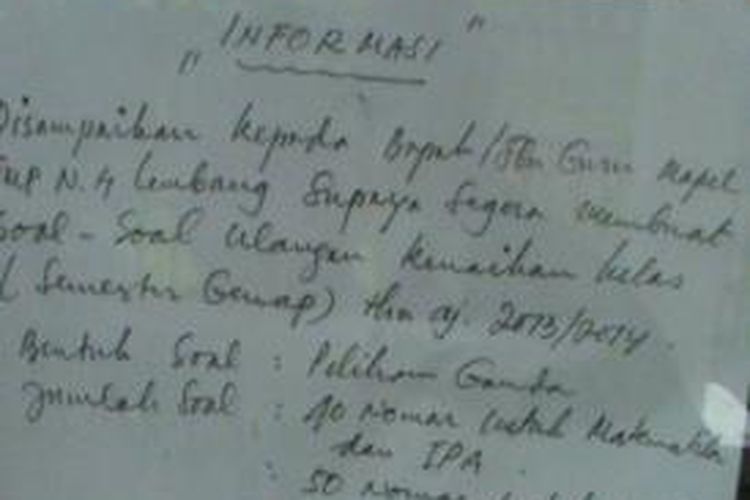 " INFORMASI "
Disampaikan kepada Bapak/Ibu Guru Mapel
SMP N. 4 Lembang Supaya Segera membuat
Soal - Soal Ulangan Kenaikan kelas
( Semester Genap) thn aj. 2013/2014.
Bentuk Soal : Pilihan Ganda
Jumlah Soal : 40 Nomor untuk Matematika
dan IPA.
: 50 Nomor